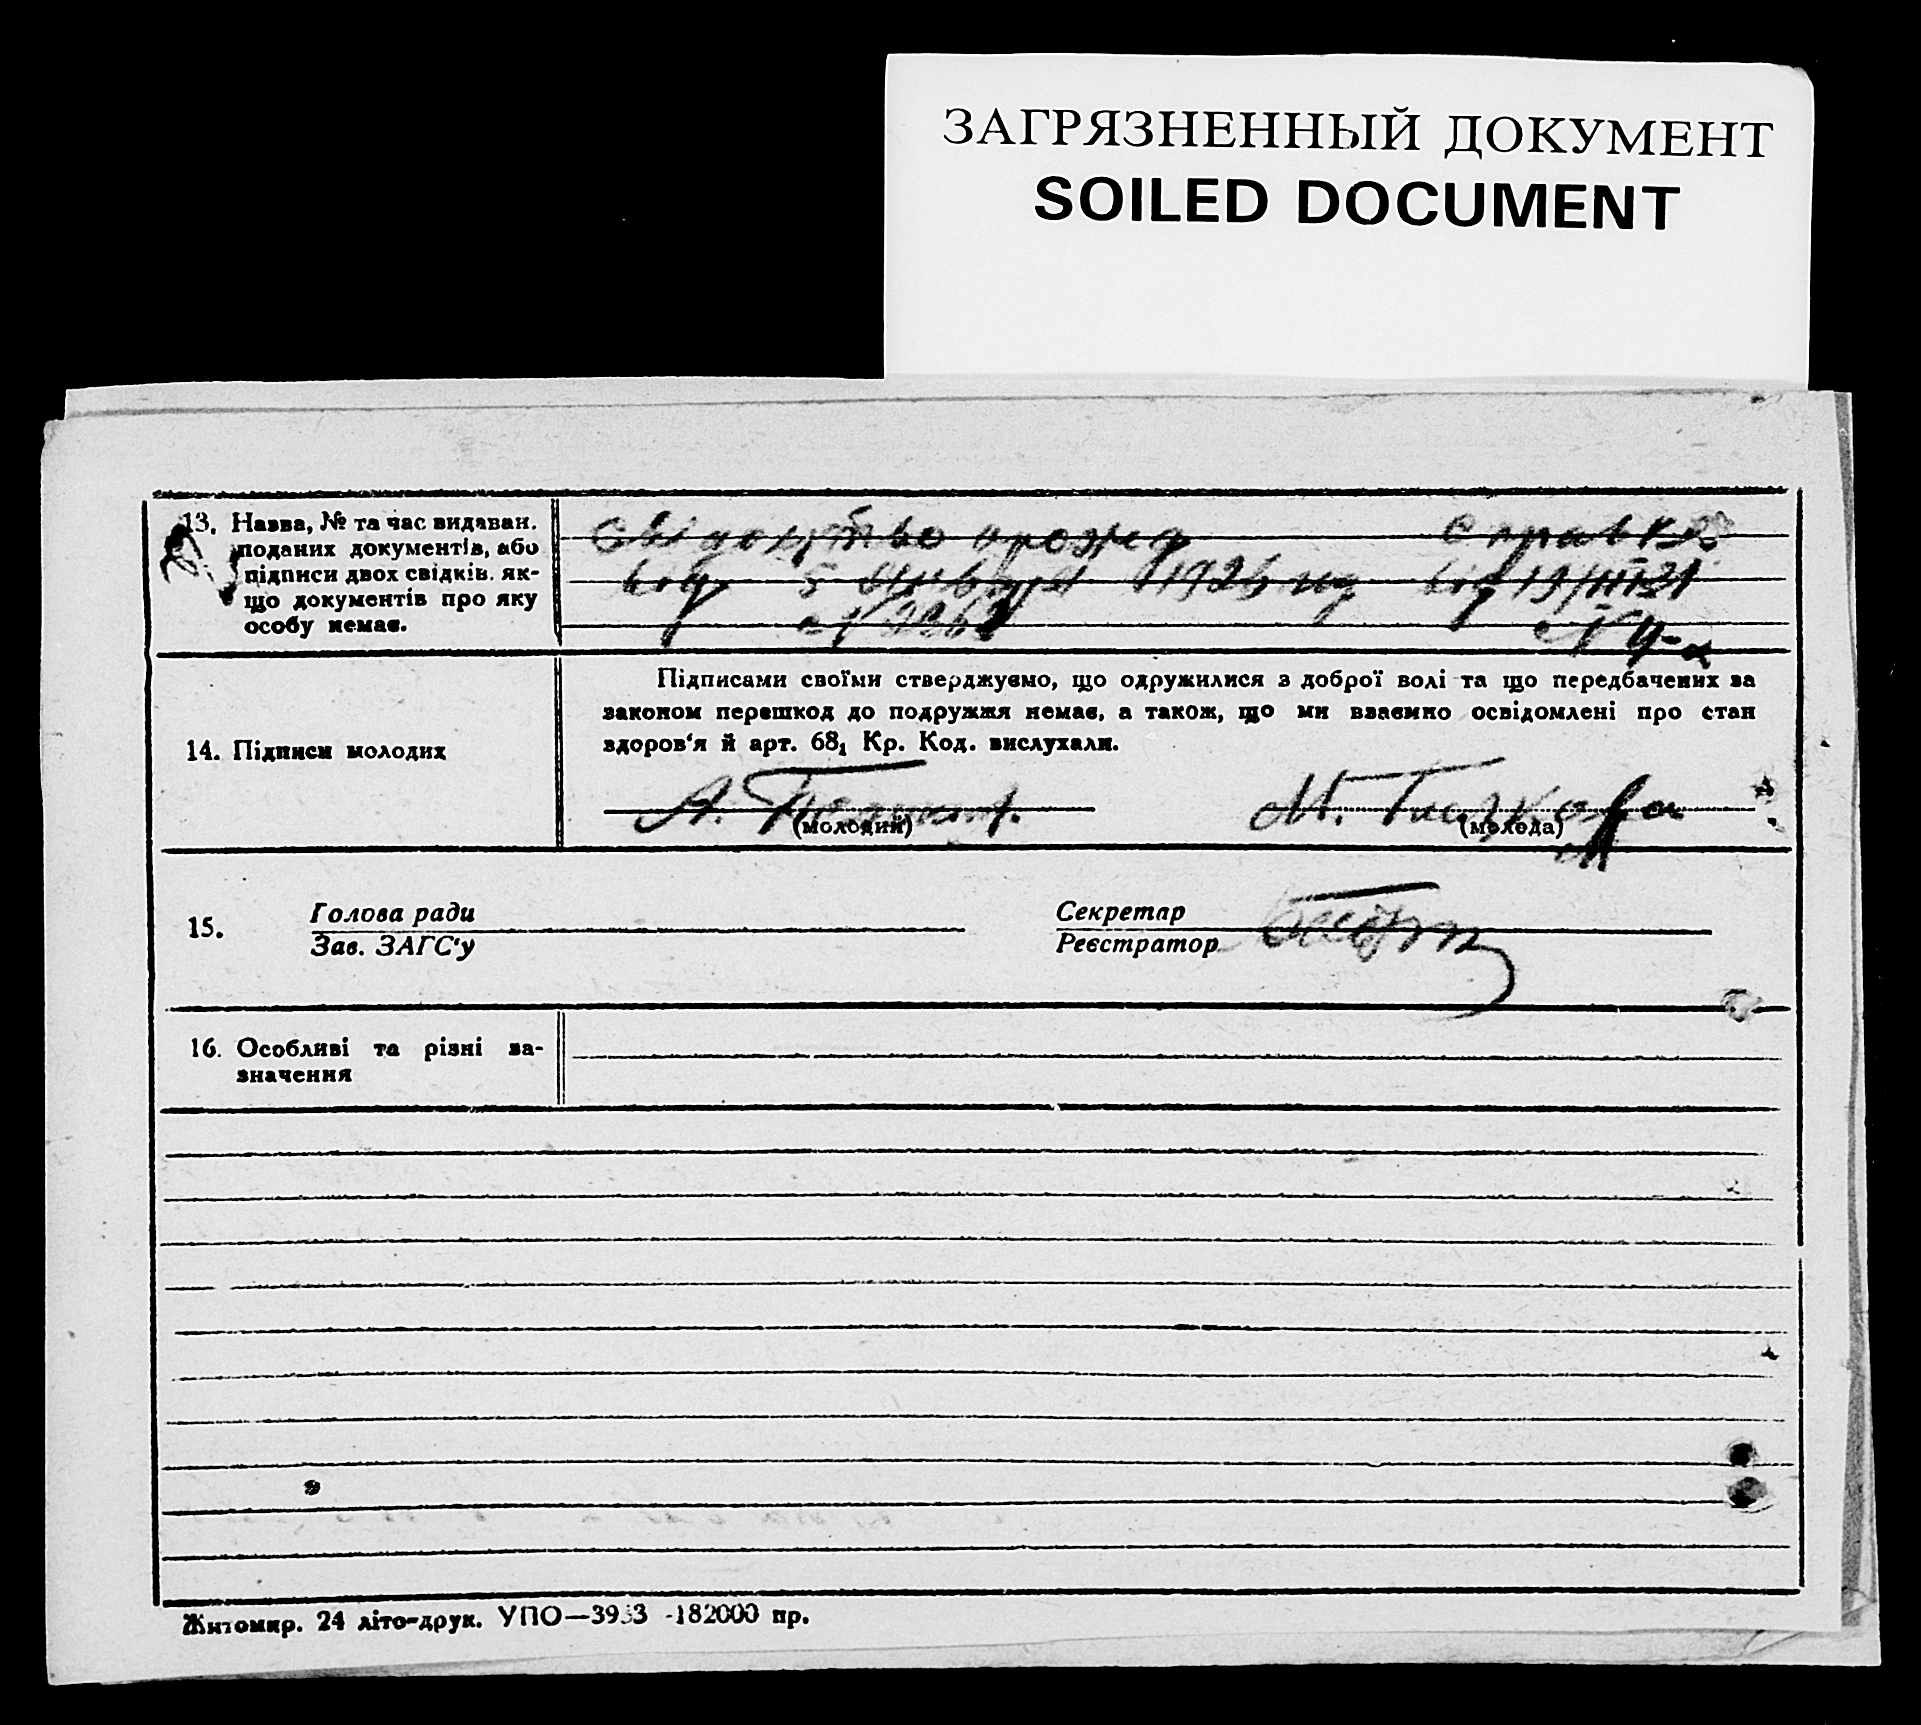 ЗАГРЯЗНЕННЫЙ ДОКУМЕНТ
SOILED DOCUMENT
13. Назва, № та час видаван.
поданих документів, або
підписи двох свідків, як-
що документів про яку
особу немає.
Свідоцтво
Справка
від 5 1926
від 19/III 31
Підписами своїми стверджуємо, що одружилися з доброї волі та що передбачених за
законом перешкод до подружжя немає, а також, що ми взаємно освідомлені про стан
здоров'я й арт. 68₁ Кр. Код. вислухали.
14. Підписи молодих
А.
М.
(молодий)
(молода)
15.
Голова ради
Зав. ЗАГС'у
Секретар
Реєстратор
16. Особливі та різні за-
значення
Житомир. 24 літо-друк. УПО— -182000 пр.